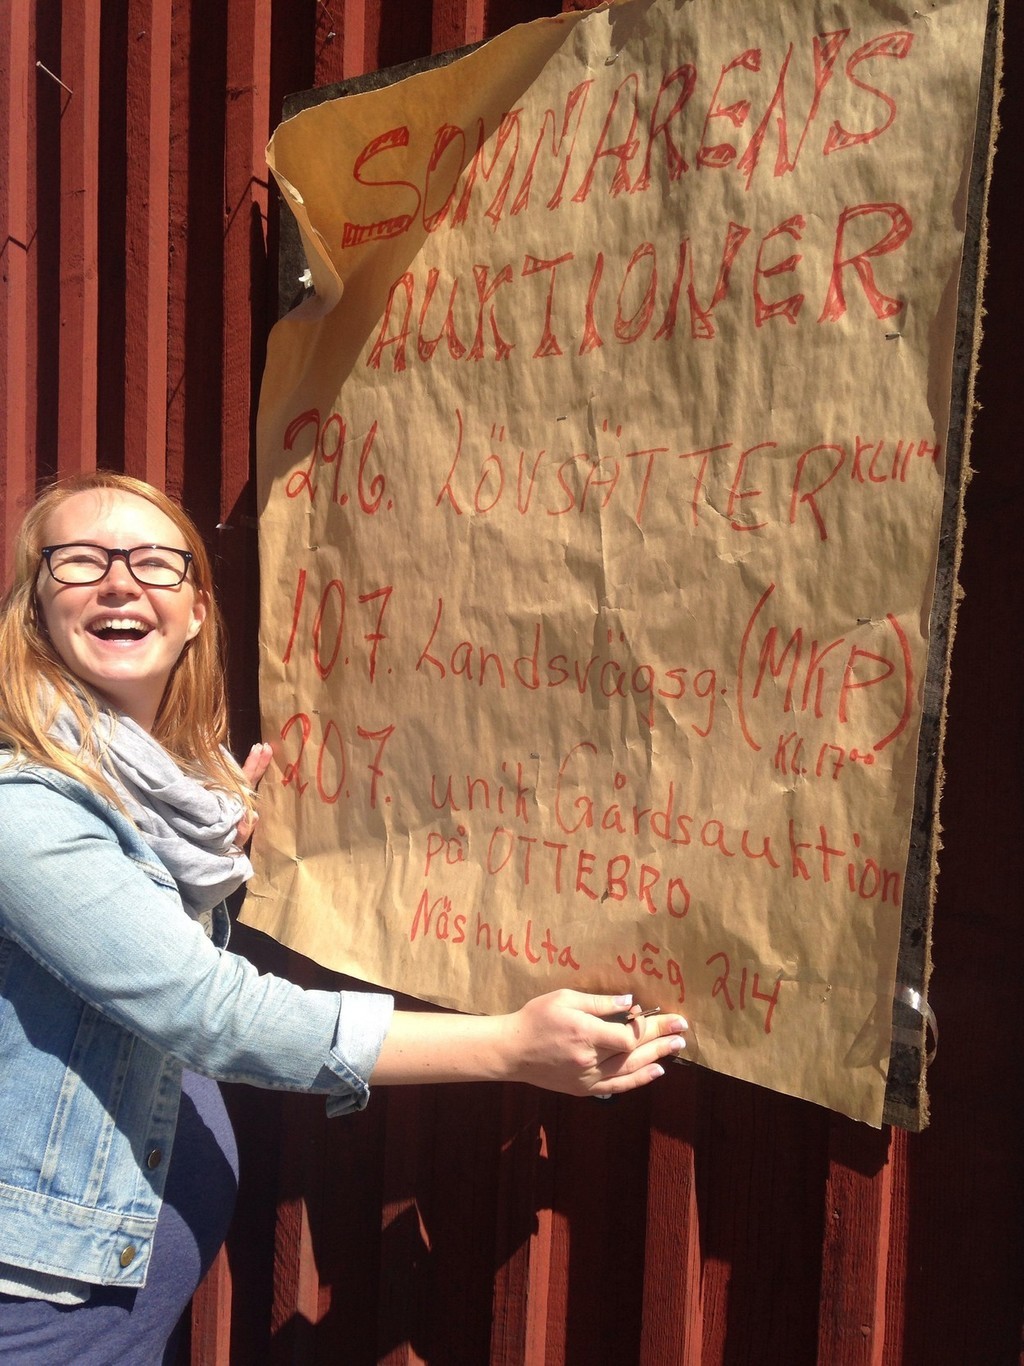 SOMMARENS
AUKTIONER
29.6. LÖVSÄTTER KL 11⁰⁰
10.7. Landsvägsg. (MKP)
KL.17⁰⁰
20.7. unik Gårdsauktion
på OTTEBRO
Näshulta väg 214